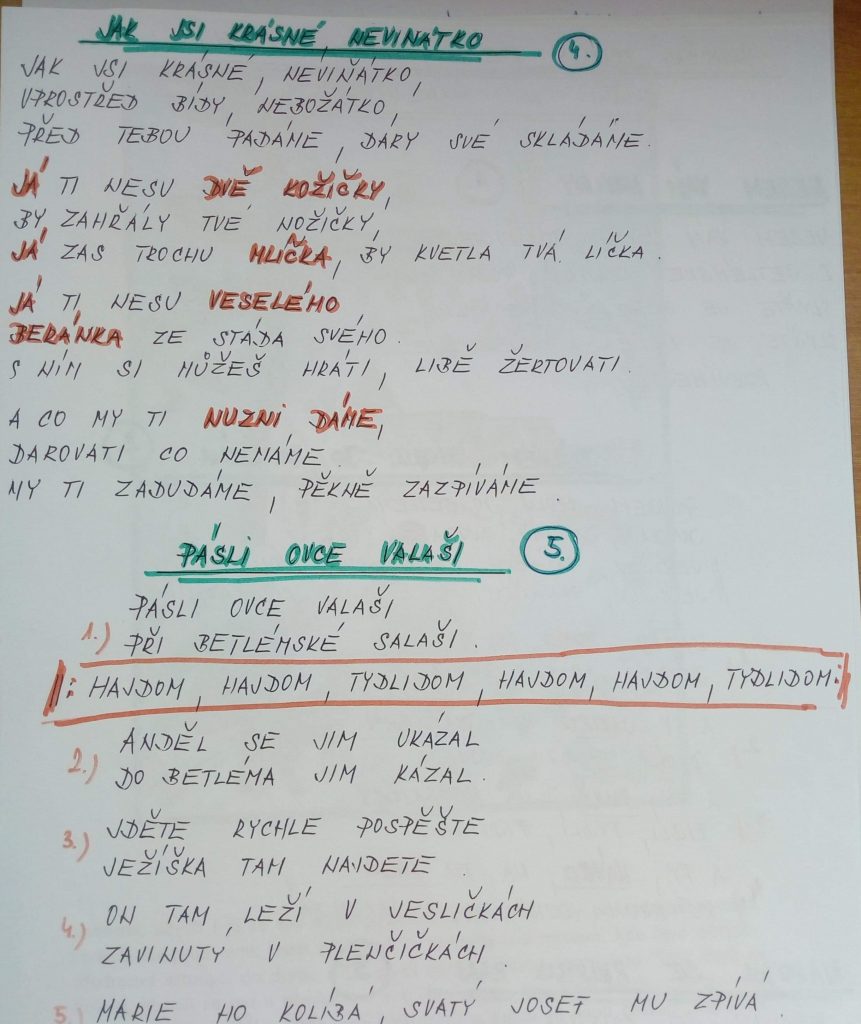 JAK JSI KRÁSNÉ NEVINÁTKO 4.
JAK JSI KRÁSNÉ, NEVIŇÁTKO,
UPROSTŘED BÍDY, NEBOŽÁTKO,
PŘED TEBOU PADÁME, DARY SVÉ SKLÁDÁME.
JÁ TI NESU DVĚ KOŽIČKY,
BY ZAHŘÁLY TVÉ NOŽIČKY,
JÁ ZAS TROCHU MLÍČKA, BY KVETLA TVÁ LÍČKA.
JÁ TI NESU VESELÉHO
BERÁNKA ZE STÁDA SVÉHO.
S NÍM SI MŮŽEŠ HRÁTI, LIBĚ ŽERTOVATI.
A CO MY TI NUZNÍ DÁME,
DAROVATI CO NEMÁME.
MY TI ZADUDÁME, PĚKNĚ ZAZPÍVÁME.
PÁSLI OVCE VALAŠI 5.
PÁSLI OVCE VALAŠI
1.) PŘI BETLÉMSKÉ SALAŠI.
‖: HAJDOM, HAJDOM, TYDLIDOM, HAJDOM, HAJDOM, TYDLIDOM :‖
ANDĚL SE JIM UKÁZAL
2.) DO BETLÉMA JIM KÁZAL.
JDĚTE RYCHLE POSPĚŠTE
3.) JEŽÍŠKA TAM NAJDETE.
ON TAM LEŽÍ V JESLIČKÁCH
4.) ZAVINUTÝ V PLENČIČKÁCH.
5.) MARIE HO KOLÍBÁ, SVATÝ JOSEF MU ZPÍVÁ.